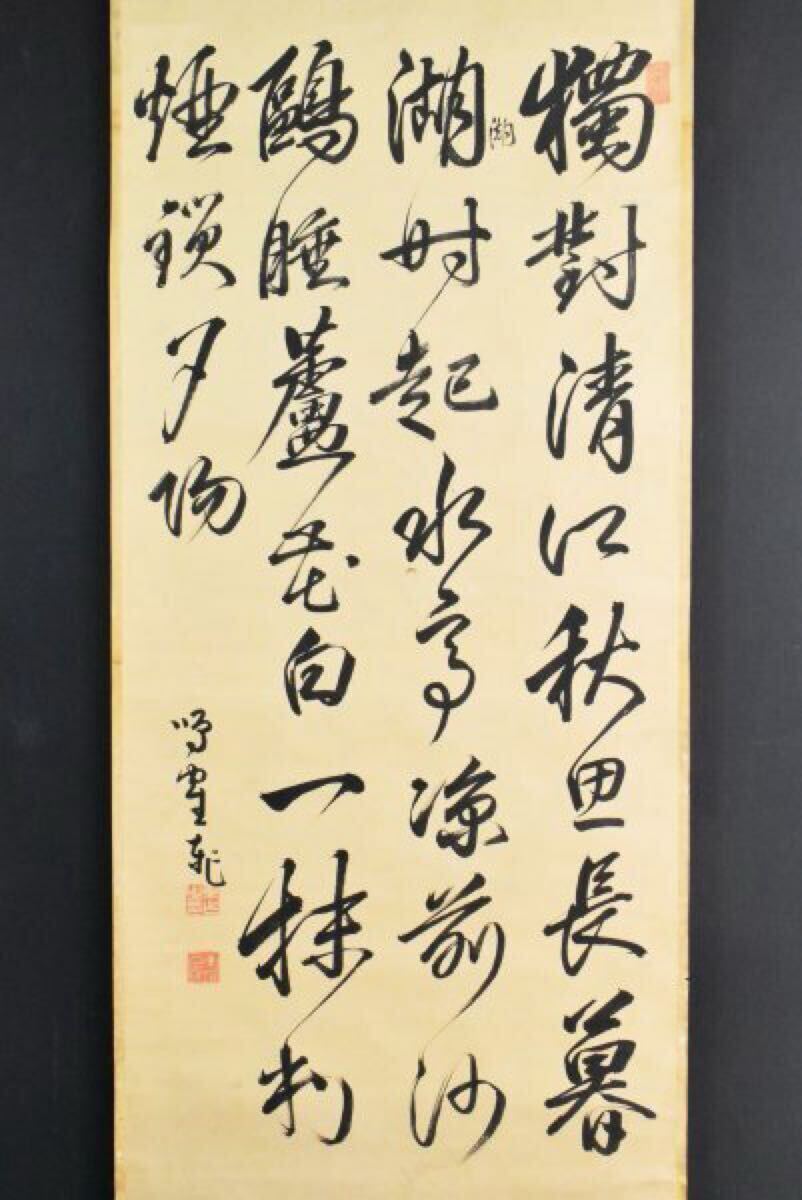 獨對清江秋思長暮
湖時起水亭涼前沙
潮
鷗睡蘆花白一抹
煙鎖夕陽